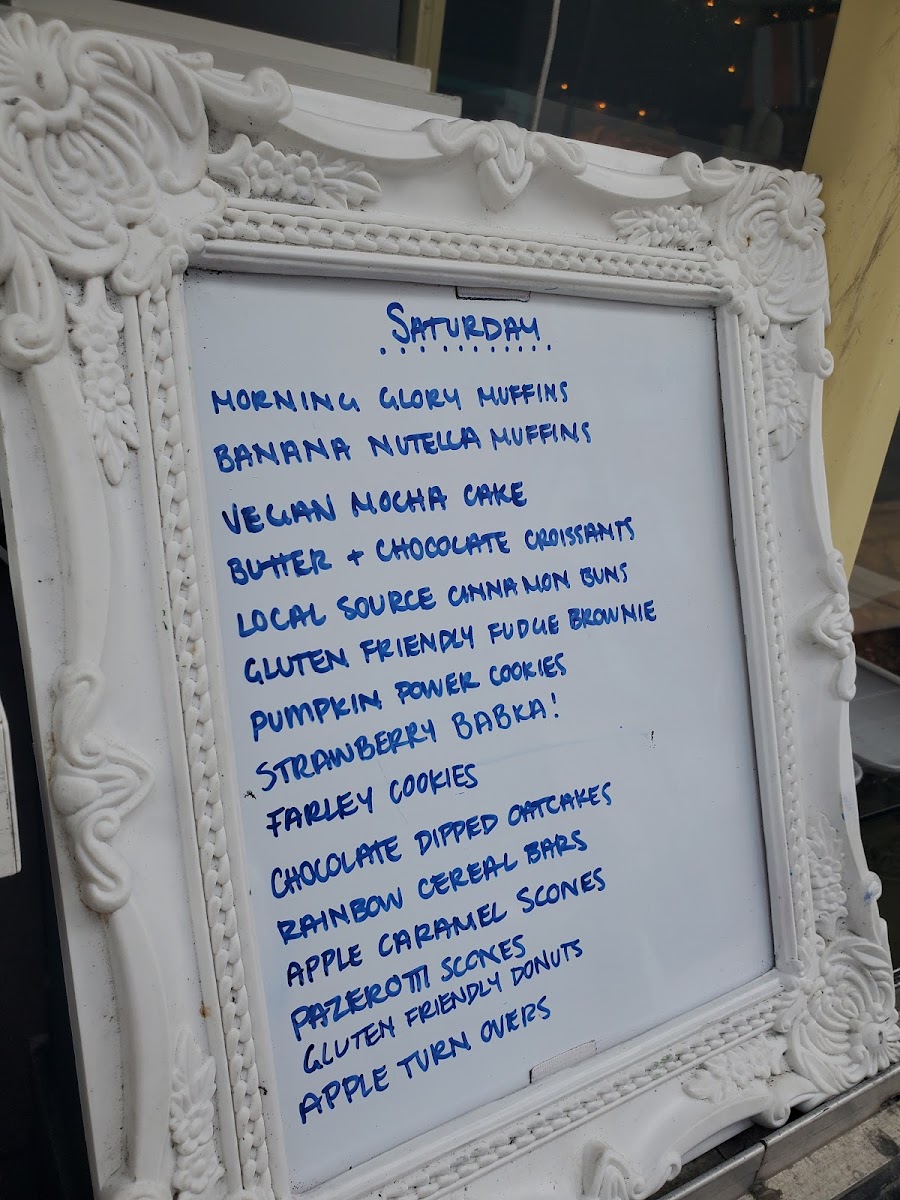 SATURDAY
MORNING GLORY MUFFINS
BANANA NUTELLA MUFFINS
VEGAN MOCHA CAKE
BUTTER + CHOCOLATE CROISSANTS
LOCAL SOURCE CINNAMON BUNS
GLUTEN FRIENDLY FUDGE BROWNIE
PUMPKIN POWER COOKIES
STRAWBERRY BABKA!
FARLEY COOKIES
CHOCOLATE DIPPED OATCAKES
RAINBOW CEREAL BARS
APPLE CARAMEL SCONES
PAZEROTTI SCONES
GLUTEN FRIENDLY DONUTS
APPLE TURN OVERS